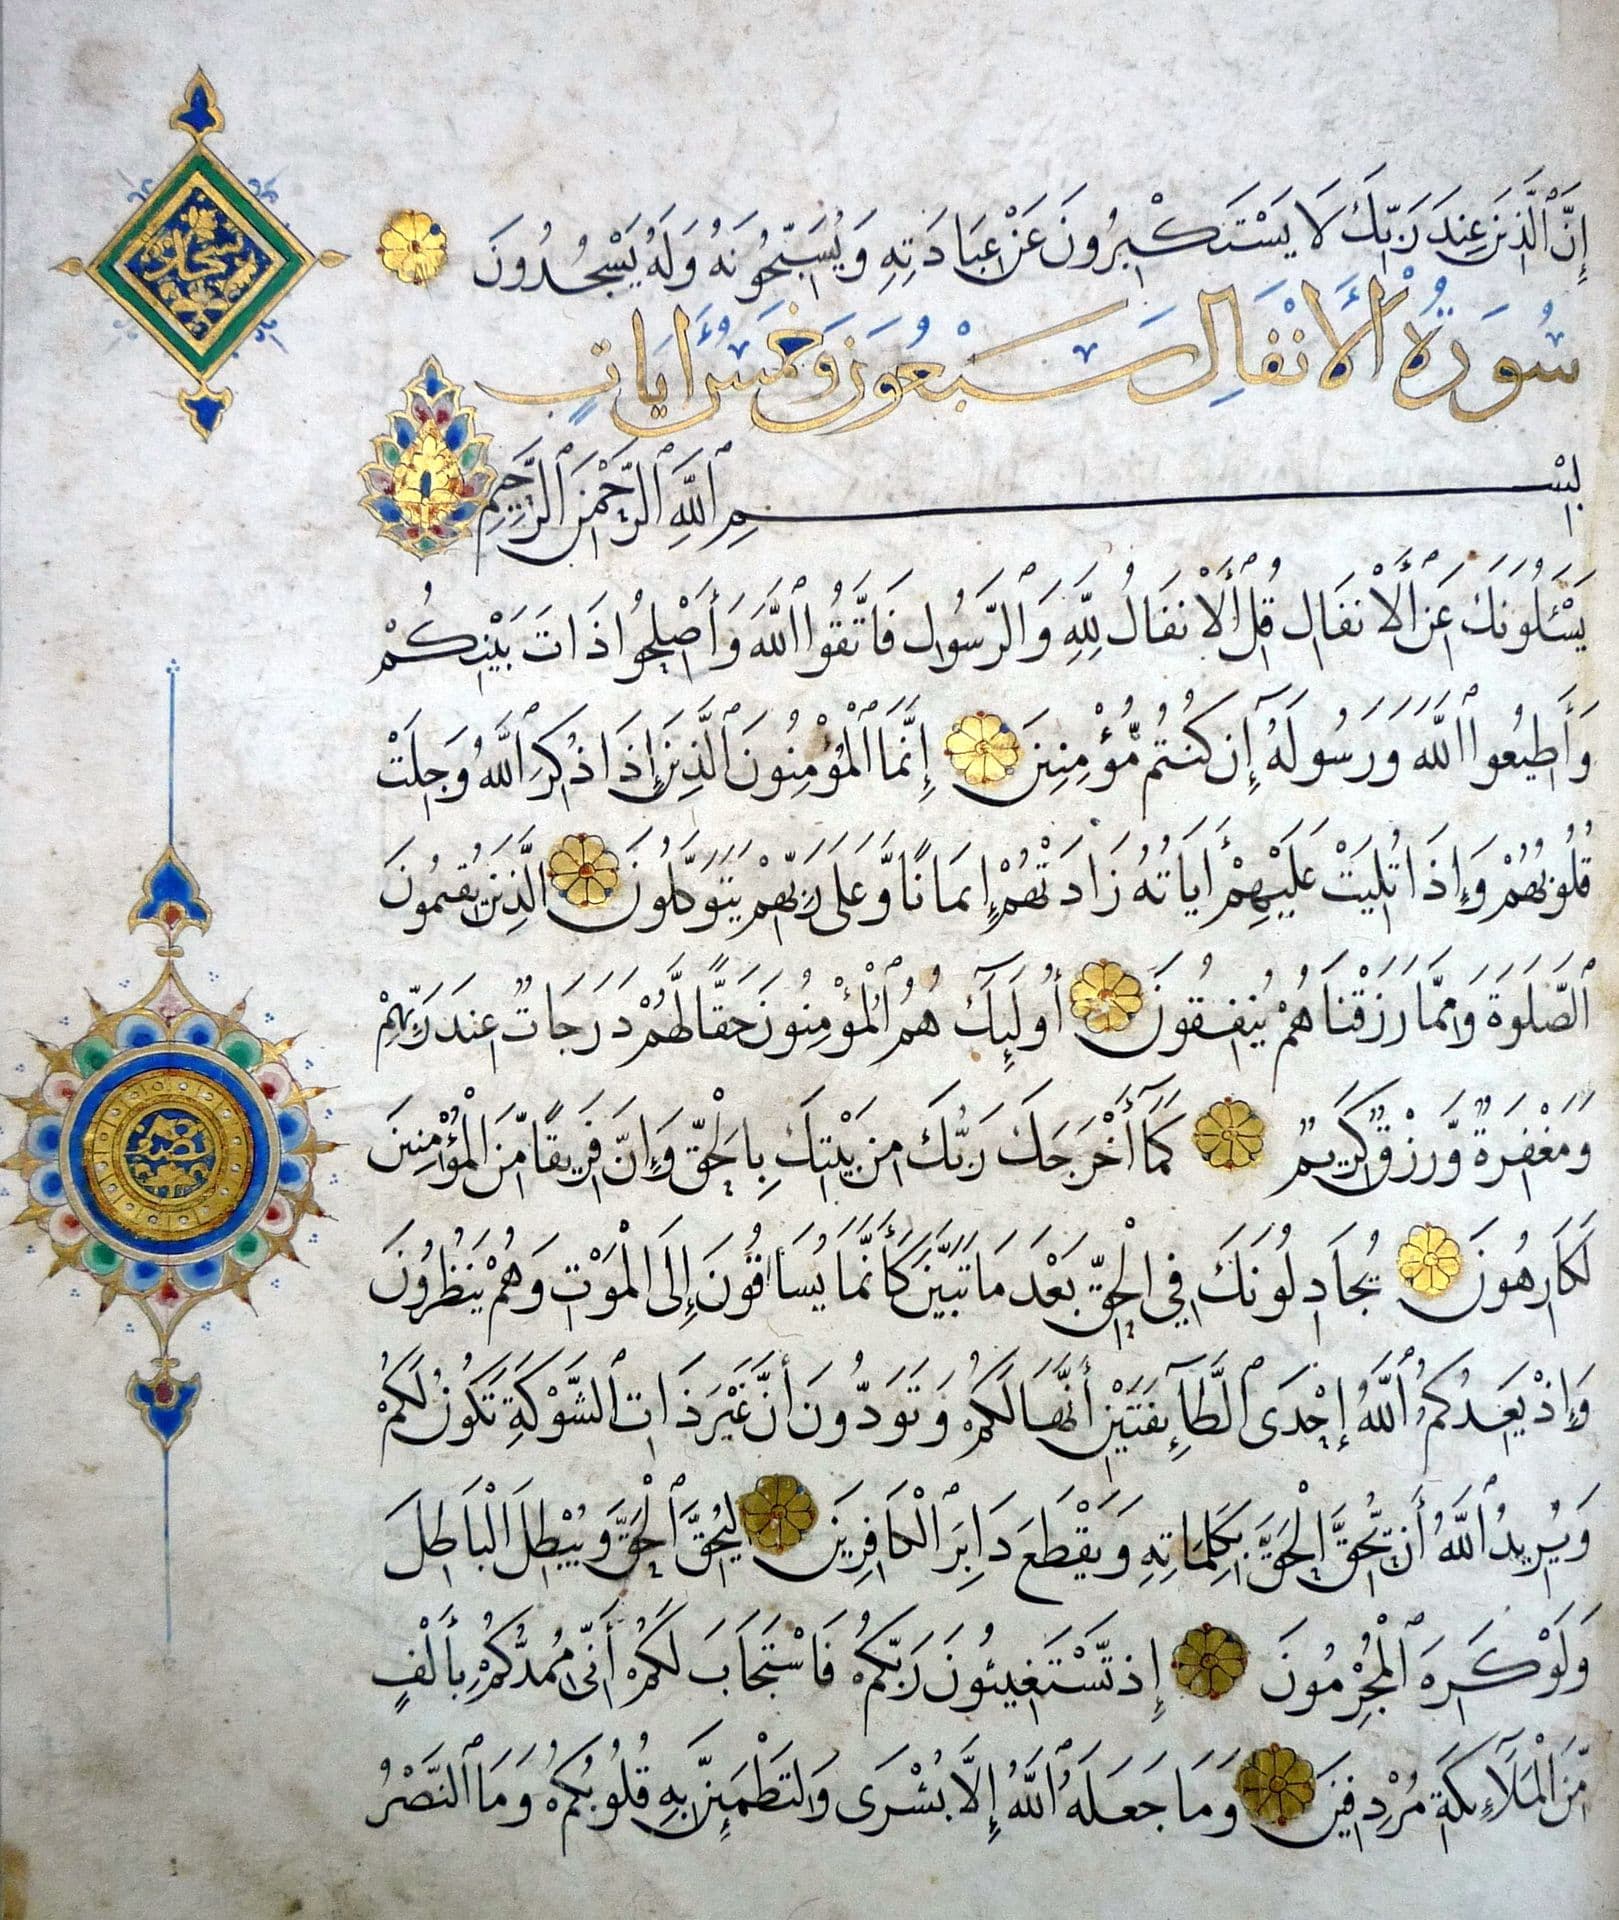 إِنَّ ٱلَّذِينَ عِندَ رَبِّكَ لَا يَسْتَكْبِرُونَ عَنْ عِبَادَتِهِ وَيُسَبِّحُونَهُ وَلَهُ يَسْجُدُونَ
سجدة
سُورَةُ الْأَنْفَالِ سَبْعُونَ وَخَمْسُ أٰيَاتٍ
بِسْمِ ٱللَّهِ ٱلرَّحْمٰنِ ٱلرَّحِيمِ
يَسْـَٔلُونَكَ عَنِ ٱلْأَنفَالِ قُلِ ٱلْأَنفَالُ لِلَّهِ وَٱلرَّسُولِ فَاتَّقُوا ٱللَّهَ وَأَصْلِحُوا ذَاتَ بَيْنِكُمْ
وَأَطِيعُوا ٱللَّهَ وَرَسُولَهُ إِن كُنتُم مُّؤْمِنِينَ إِنَّمَا ٱلْمُؤْمِنُونَ ٱلَّذِينَ إِذَا ذُكِرَ ٱللَّهُ وَجِلَتْ
قُلُوبُهُمْ وَإِذَا تُلِيَتْ عَلَيْهِمْ أٰيَاتُهُ زَادَتْهُمْ إِيمَانًا وَّعَلَى رَبِّهِمْ يَتَوَكَّلُونَ الَّذِينَ يُقِيمُونَ
ٱلصَّلَوٰةَ وَمِمَّا رَزَقْنَاهُمْ يُنفِقُونَ أُولَٰٓئِكَ هُمُ ٱلْمُؤْمِنُونَ حَقًّا لَّهُمْ دَرَجَاتٌ عِندَ رَبِّهِمْ
وَمَغْفِرَةٌ وَّرِزْقٌ كَرِيمٌ كَمَآ أَخْرَجَكَ رَبُّكَ مِن بَيْتِكَ بِالْحَقِّ وَإِنَّ فَرِيقًا مِّنَ الْمُؤْمِنِينَ
لَكَارِهُونَ يُجَادِلُونَكَ فِي الْحَقِّ بَعْدَ مَا تَبَيَّنَ كَأَنَّمَا يُسَاقُونَ إِلَى الْمَوْتِ وَهُمْ يَنظُرُونَ
وَإِذْ يَعِدُكُمُ ٱللَّهُ إِحْدَى ٱلطَّآئِفَتَيْنِ أَنَّهَا لَكُمْ وَتَوَدُّونَ أَنَّ غَيْرَ ذَاتِ ٱلشَّوْكَةِ تَكُونُ لَكُمْ
وَيُرِيدُ ٱللَّهُ أَن يُّحِقَّ الْحَقَّ بِكَلِمَاتِهِ وَيَقْطَعَ دَابِرَ الْكَافِرِينَ لِيُحِقَّ ٱلْحَقَّ وَيُبْطِلَ الْبَاطِلَ
وَلَوْ كَرِهَ ٱلْمُجْرِمُونَ إِذ تَّسْتَغِيثُونَ رَبَّكُمْ فَاسْتَجَابَ لَكُمْ أَنِّي مُمِدُّكُمْ بِأَلْفٍ
مِّنَ الْمَلَآئِكَةِ مُرْدِفِينَ وَمَا جَعَلَهُ ٱللَّهُ إِلَّا بُشْرَى وَلِتَطْمَئِنَّ بِهِ قُلُوبُكُمْ وَمَا النَّصْرُ